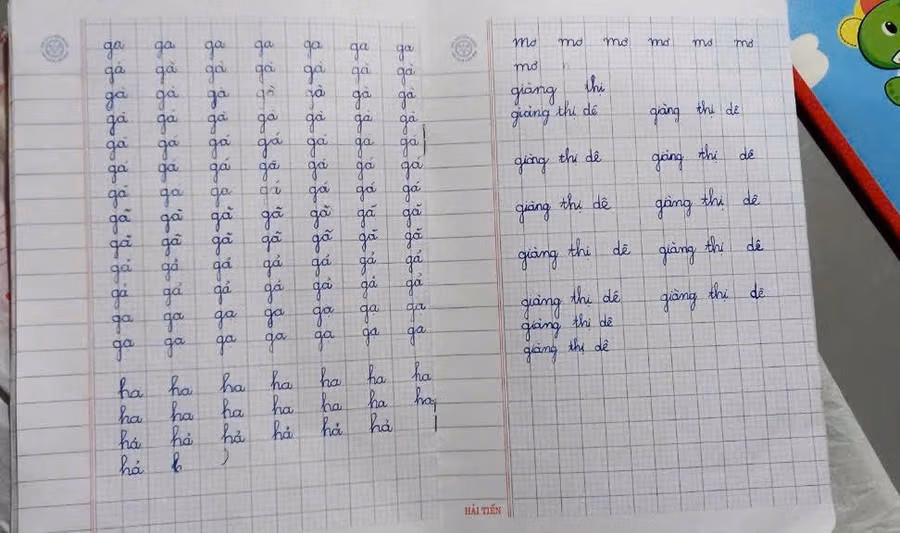 ga ga ga ga ga ga ga
gà gà gà gà gà gà gà
gà gà gà gà gà gà gà
gà gà gà gà gà gà gà
gá gá gá gá gá gá gá
gá gá gá gá gá gá gá
gá ga ga gá gá gá gá
gã gã gã gã gã gã gã
gã gã gã gã gã gã gã
gả gả gả gả gả gả gả
gả gả gả gả gả gả gả
gạ gạ gạ gạ gạ gạ gạ
gạ ga ga ga ga ga ga
ha ha ha ha ha ha ha
ha ha ha ha ha ha ha
hả hả hả hả hả hả
hả
mơ mơ mơ mơ mơ mơ
mơ
giàng thi
giàng thị dê giàng thị dê
giàng thị dê giàng thị dê
giàng thị dê giàng thị dê
giàng thị dê giàng thị dê
giàng thị dê giàng thị dê
giàng thị dê
giàng thị dê
HẢI TIẾN